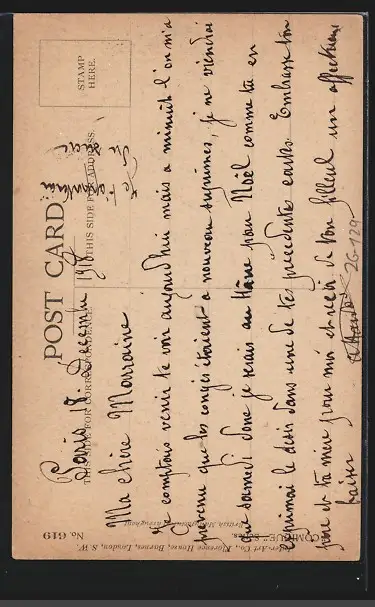 POST CARD.
STAMP
HERE.
THIS SIDE FOR CORRESPONDENCE.
THIS SIDE FOR ADDRESS.
Paris 18 Décembre 1918
Ma chère Marraine
Je comptais venir te voir aujourd'hui mais a minuit l'on m'a
prévenu que les congés étaient a nouveau suprimés, je ne viendrai
que samedi donc je serais au Hâvre pour Noël comme tu en
exprimai le désir dans une de tes précédentes cartes. Embrasse ton
père et ta mère pour moi et reçoit de ton filleul un affectueux
baiser
26-129
No. 619
"COMIQUE" SERIES.
Inter-Art Co., Florence House, Barnes, London, S.W.
British Manufacture throughout